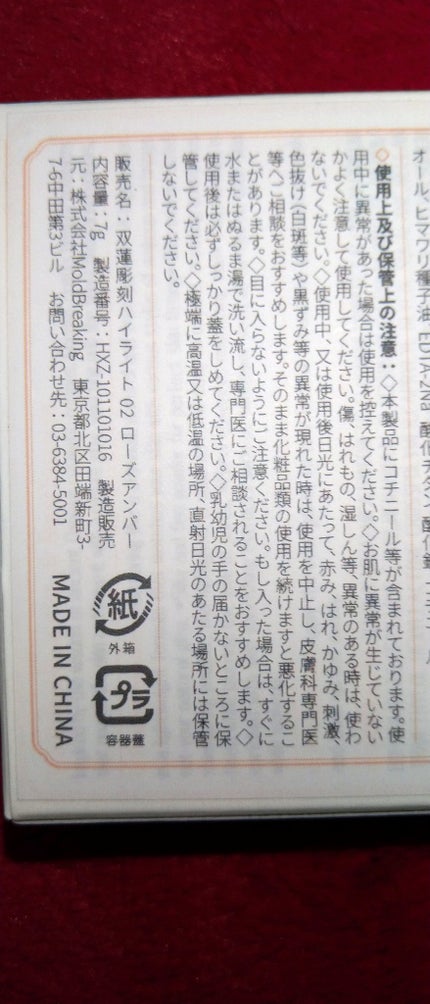 オール、ヒマワリ種子油、EDTA-2Na、酸化チタン、酸化
◇使用上及び保管上の注意：◇本製品にコチニール等が含まれております。使
用中に異常があった場合は使用を控えてください。◇お肌に異常が生じていない
かよく注意して使用してください。傷、はれもの、湿しん等、異常のある時は、使わ
ないでください。◇使用中、又は使用後日光にあたって、赤み、はれ、かゆみ、刺激、
色抜け（白斑等）や黒ずみ等の異常が現れた時は、使用を中止し、皮膚科専門医
等へご相談をおすすめします。そのまま化粧品類の使用を続けますと悪化するこ
とがあります。◇目に入らないようにご注意ください。もし入った場合は、すぐに
水またはぬるま湯で洗い流し、専門医にご相談されることをおすすめします。◇
使用後は必ずしっかり蓋をしめてください。◇乳幼児の手の届かないところに保
管してください。◇極端に高温又は低温の場所、直射日光のあたる場所には保管
しないでください。
販売名：双蓮彫刻ハイライト 02 ローズアンバー
内容量：7g 製造番号：HXZ-101101016 製造販売
元：株式会社MoldBreaking 東京都北区田端新町3-
7-6中田第3ビル お問い合わせ先：03-6384-5001
紙
外箱
プラ
容器蓋
MADE IN CHINA